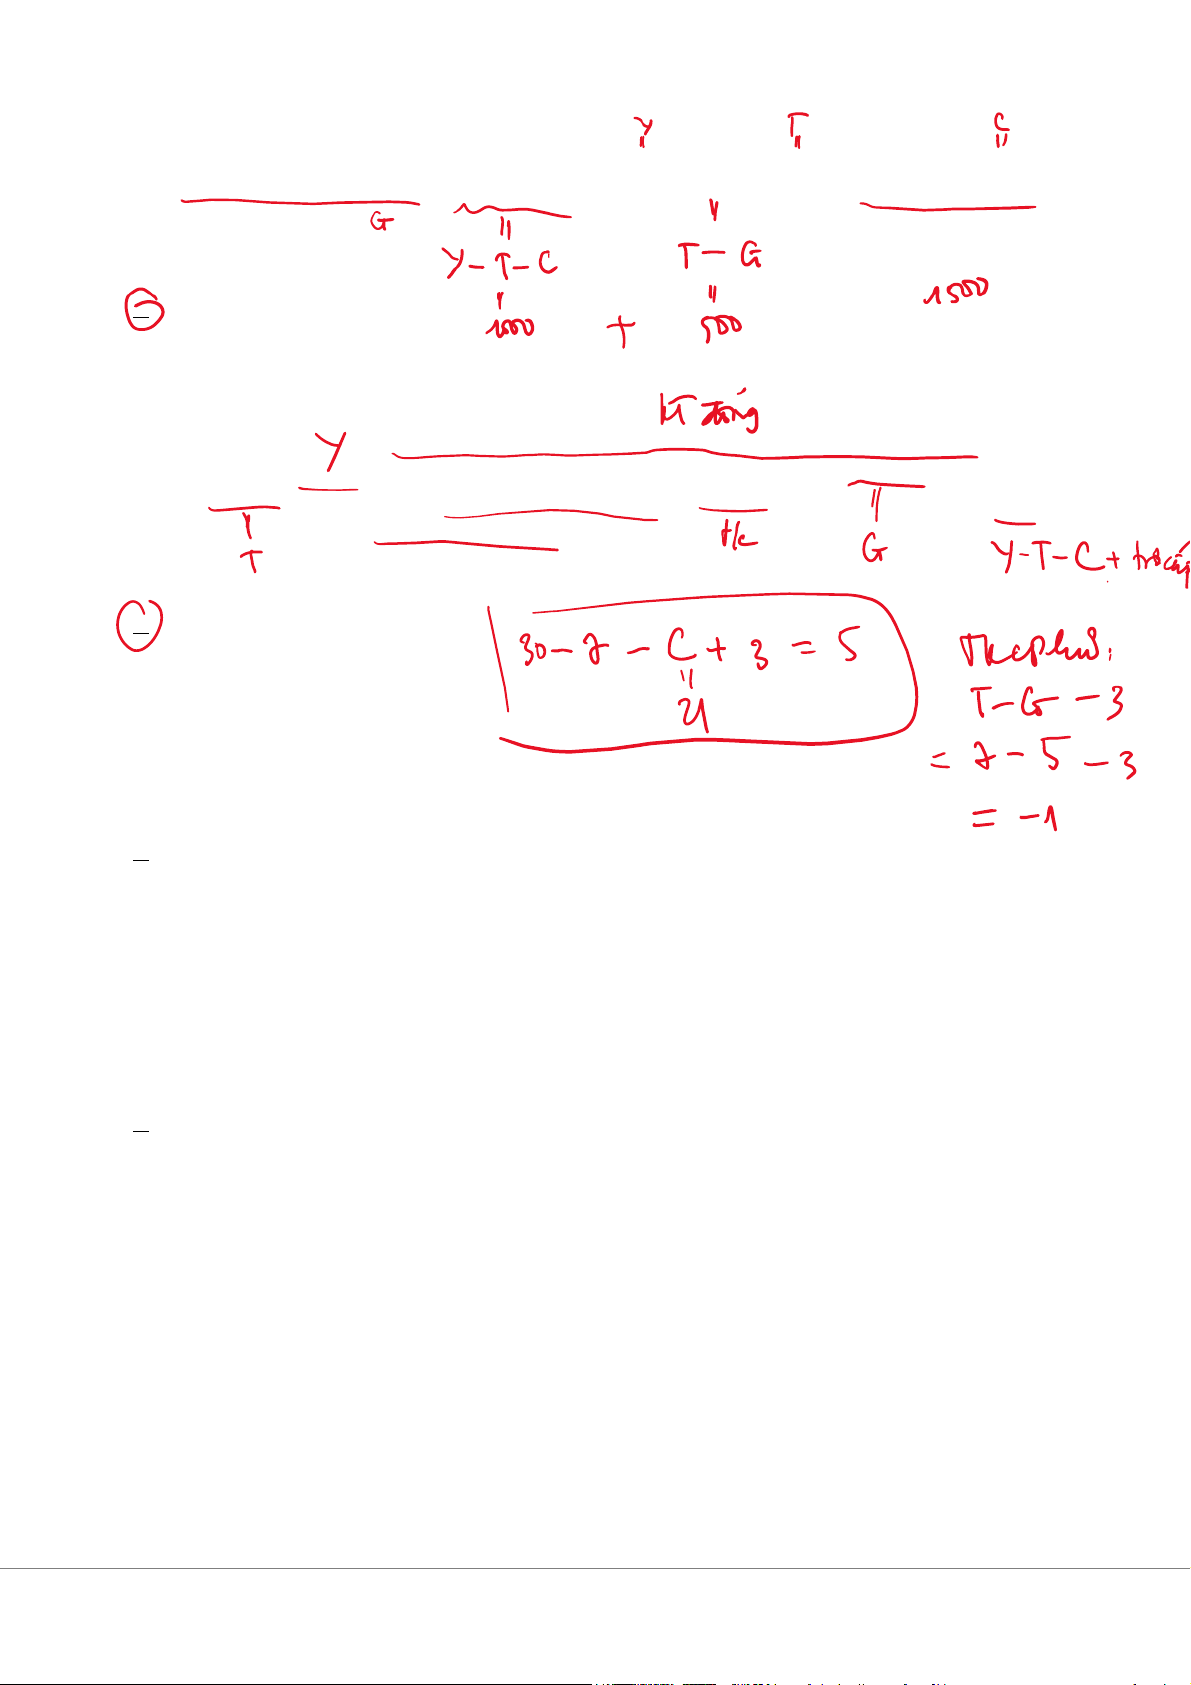 Y T C
G
Y-T-C T-G
1000 + 500 1500
kt đóng
Y
T t/c G Y-T-C + trợ cấp
30 - 7 - C + 3 = 5
21
TK cphủ:
T-G-3
= 7 - 5 - 3
= -1